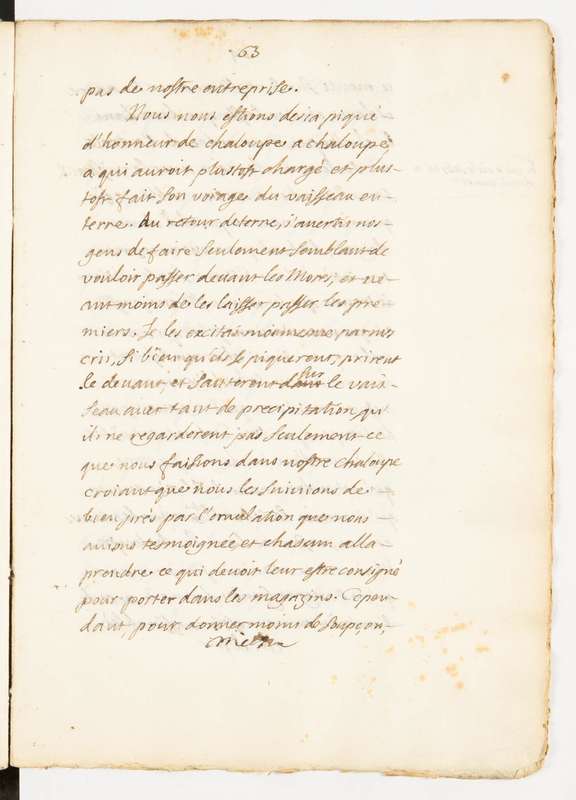 63
pas de nostre entreprise.
Nous nous estions desia piqué
d'honneur de chaloupe a chaloupe,
a qui auroit plustost chargé et plus-
tost fait son voiage du vaisseau en
terre. Au retour de terre, i'avertis nos
gens de faire seulement semblant de
vouloir passer devant les Mores, et ne-
antmoins de les laisser passer les pre-
miers. Je les excitai moimesme par mes
cris, si bien qu'ils se piquerent, prirent
le devant, et sauterent dans sur le vais-
seau avec tant de precipitation qu'
ils ne regarderent pas seulement ce
que nous faisions dans nostre chaloupe
croiant que nous les suivions de
bien prés par l'emulation que nous
avions tesmoignée, et chascun alla
prendre ce qui devoit leur estre consigné
pour porter dans les magazins. Cepen-
dant, pour donner moins de soupçon,